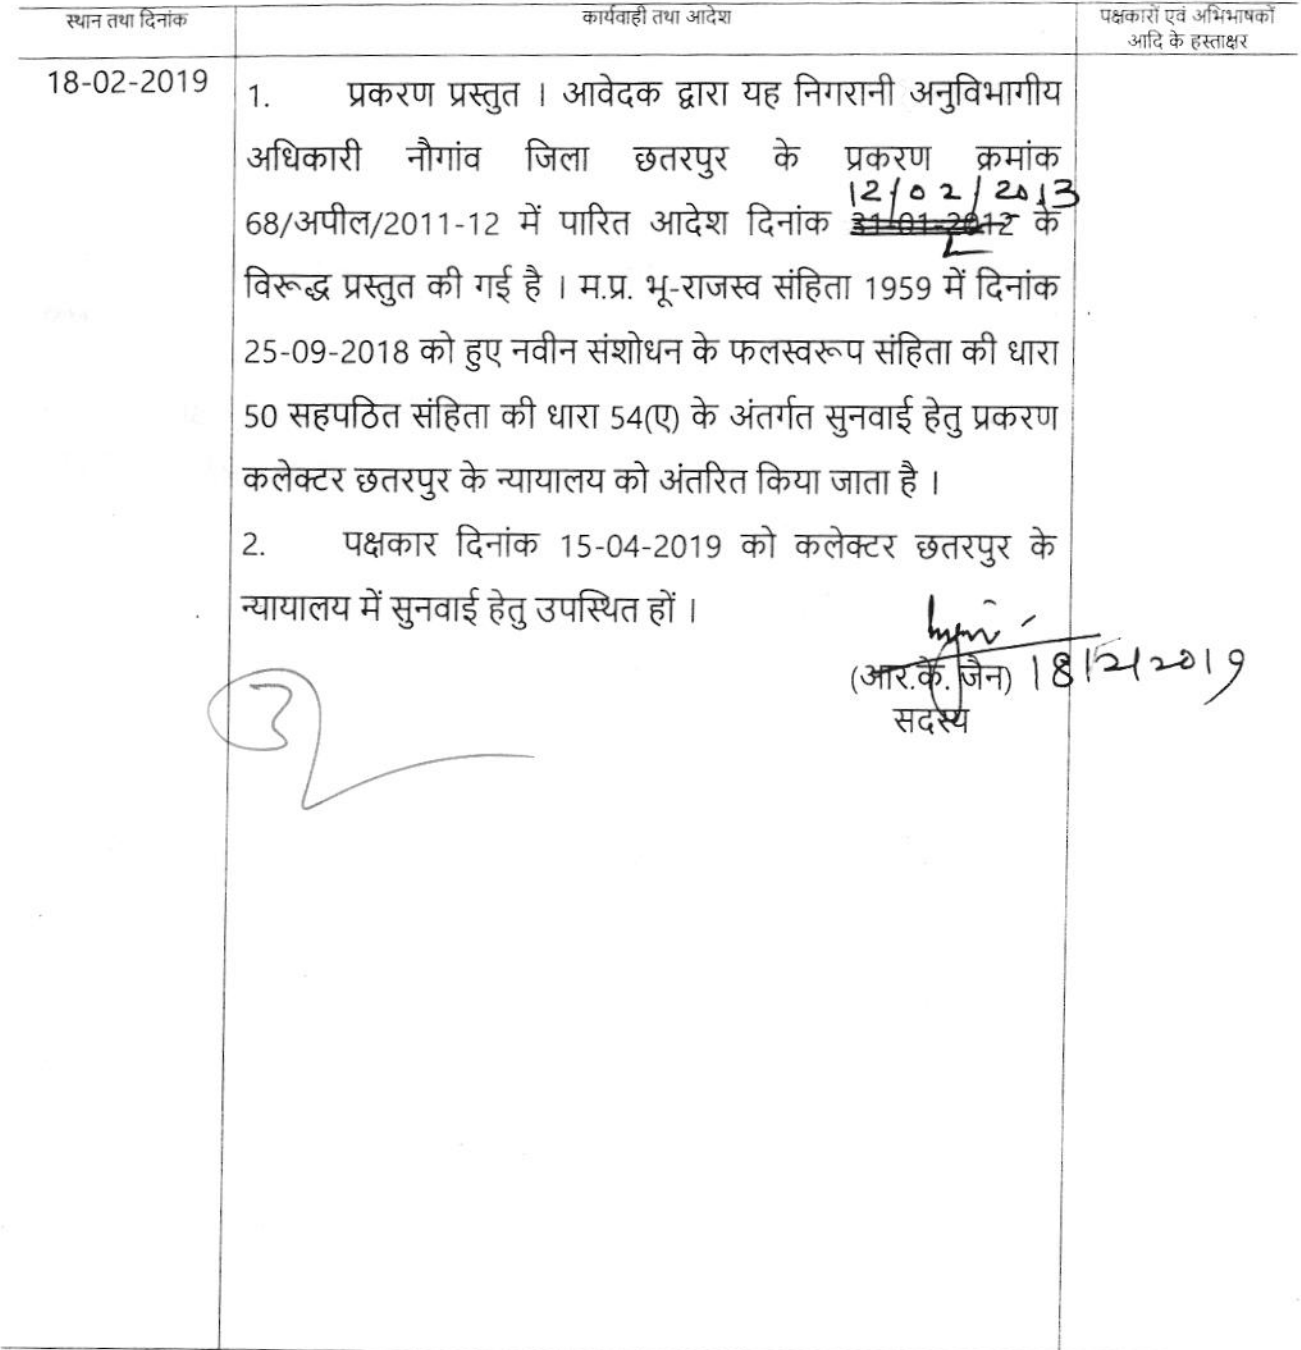 स्थान तथा दिनांक
कार्यवाही तथा आदेश
पक्षकारों एवं अभिभाषकों
आदि के हस्ताक्षर
18-02-2019
1. प्रकरण प्रस्तुत । आवेदक द्वारा यह निगरानी अनुविभागीय
अधिकारी नौगांव जिला छतरपुर के प्रकरण क्रमांक
12/02/2013
68/अपील/2011-12 में पारित आदेश दिनांक 31-01-2012 के
विरूद्ध प्रस्तुत की गई है । म.प्र. भू-राजस्व संहिता 1959 में दिनांक
25-09-2018 को हुए नवीन संशोधन के फलस्वरूप संहिता की धारा
50 सहपठित संहिता की धारा 54(ए) के अंतर्गत सुनवाई हेतु प्रकरण
कलेक्टर छतरपुर के न्यायालय को अंतरित किया जाता है ।
2. पक्षकार दिनांक 15-04-2019 को कलेक्टर छतरपुर के
न्यायालय में सुनवाई हेतु उपस्थित हों ।
(आर.के. जैन) 18/2/2019
सदस्य